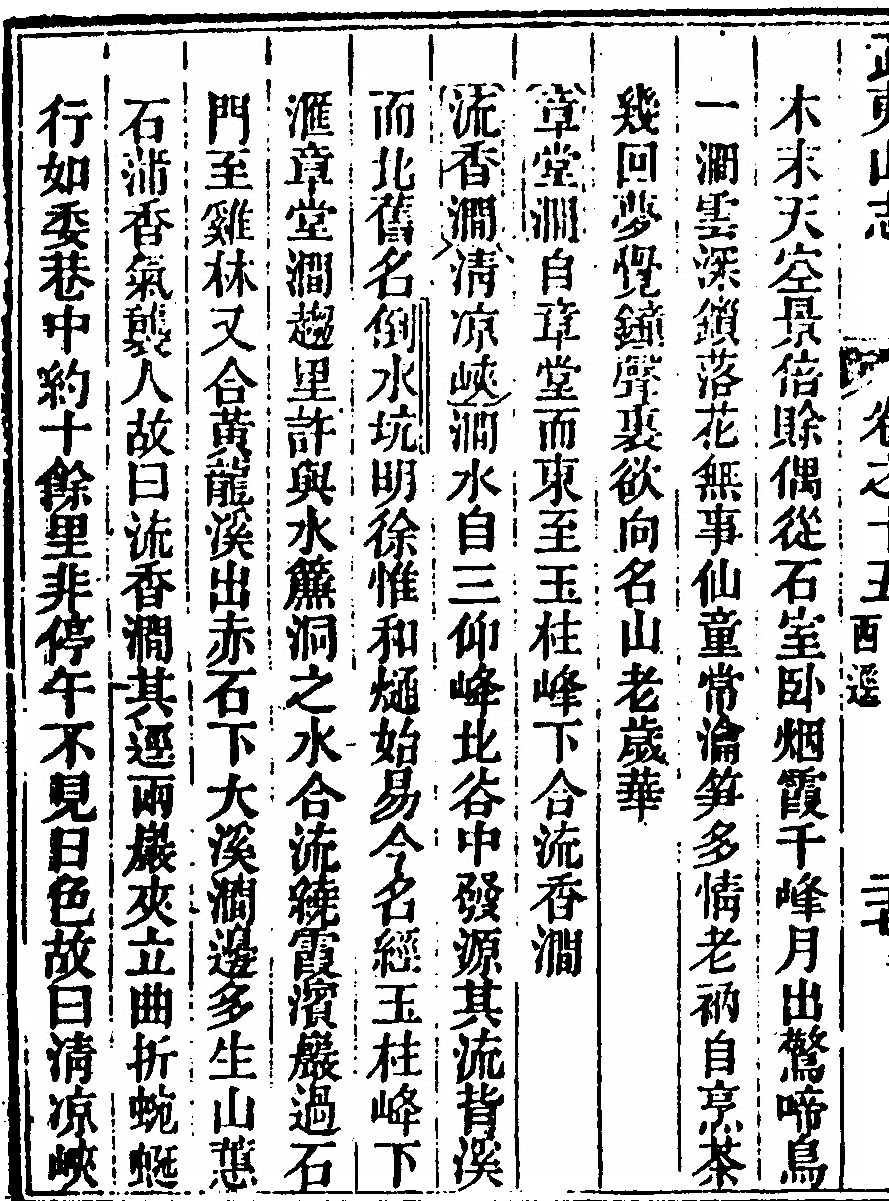 武夷山志 卷之十五 西遥 二七
木末天空景倍賖偶從石室卧烟霞千峰月出驚啼鳥
一澗雲深鎖落花無事仙童常瀹笋多情老衲自烹茶
幾回夢覺鐘聲裏欲向名山老歲華
章堂澗自章堂而東至玉柱峰下合流香澗
流香澗淸凉峽澗水自三仰峰北谷中發源其流背溪
而北舊名倒水坑明徐惟和熥始易今名經玉柱峰下
滙章堂澗趨里許與水簾洞之水合流繞霞濱巖過石
門至雞林又合黃龍溪出赤石下大溪澗邊多生山蕙
石蒲香氣襲人故曰流香澗其逕兩巖夾立曲折蜿蜒
行如委巷中約十餘里非停午不見日色故曰淸凉峽